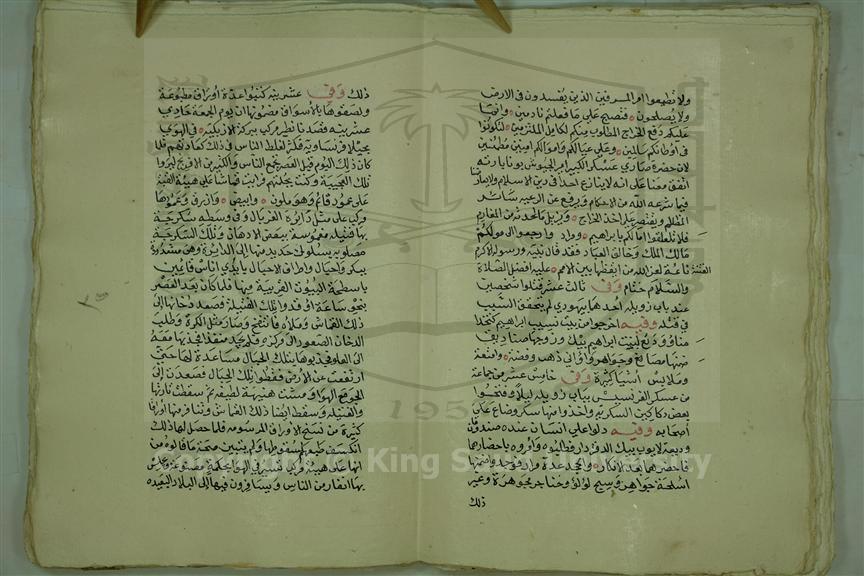 ولا تطيعوا امر المسرفين الذين يفسدون في الارض
ولا يصلحون فتصبحوا على ما فعلتم نادمين وانما
عليكم دفع الخراج المطلوب منكم لكامل الملتزمين لتكونوا
في أوطانكم سالمين وعلى عيالكم واموالكم امنين مطمئنين
لان حضرة صاري عسكر الكبير امير الجيوش بونابارته
اتفق معنا على انه لا ينازع احدا في دين الاسلام ولا يعارضنا
فيما شرعه الله من الاحكام ويرفع عن الرعيه سائر
المظالم ويقتصر على اخذ الخراج ويزيل ما احدثه من المغارم
فلا تعلقوا امالكم بابراهيم ومراد وارجعوا الى مولاكم
مالك الملك وخالق العباد فقد قال نبيه ورسوله الاكرم
الفتنة نائمة لعن الله من ايقظها بين الامم عليه افضل الصلاة
والسلام ختام وفي ثالث عشر قتلوا شخصين
عند باب زويله احدهما يهودي لم يتحقق السبب
في قتله وفيه اخرجوا من بيت نسيب ابراهيم كتخدا
صناديق
ضمنها مصاغ وجواهر واواني ذهب وفضة وامتعة
وملابيس اشيا كثيرة وفي خامس عشر من جماعة
من عسكر الفرنسيس بباب زويله ليلا وفتحوا
بعض دكاكين السكريه واخذوا منها سكر وضاع على
اصحابه وفيه دلوا على انسان عنده صندوق
وديعة لايوب بيك الدفتردار فطلبوه وامروه باحضارها
فاحضرهما بعد الانكار والجحد عدة مرار فوجدوا ضمنها
اسلحة جواهر وسبح لولو وخناجر مجوهرة وغير
ذلك
ذلك وفي عشرينه كتبوا عدة أوراق مطبوعة
ولصقوها بالاسواق مضمونها ان يوم الجمعة حادي
عشرينه قصدنا نطير مركب ببركة الازبكيه في الهوى
بحيلة فرنساويه فكثر لغط الناس في ذلك كعادتهم فلما
كان ذلك اليوم قبل العصر تجمع الناس والكثير من الافرنج ليروا
تلك العجيبة وكنت بجملتهم فرايت قماشا على هيئة القبة
على عمود قائم وهو ملون وابيض وازرق وعمودها
وركب على مثل دائرة الغربال وفي وسطه سكرجة
بها فتيله مغموسة ببعض الادهان وتلك السكرجة
مصلوبه بسلوك حديد منها الى الدائرة وهي مشدودة
ببكر واحبال واطراف الاحبال بايدي اناس قائمين
باسطحة البيوت القريبة منها فلما كان بعد العصر
بنحو ساعة اوقدوا تلك الفتيلة فصعد دخانها الى
ذلك القماش وملاه فانتفخ وصار مثل الكرة وطلب
الدخان الصعود الى مركزه فلم يجد منفذا فجذبها معه
الى العلو فجذبوها بتلك الحبال مساعدة لها حتى
ارتفعت عن الارض فقطعوا تلك الحبال فصعدت الى
الجو مع الهوا ومشت هنيهة لطيفه ثم سقطت نارتها
والفتيله وسقط ايضا ذلك القماش وتناثر منها اوراقا
كثيرة من نسخ الاوراق المرسومه فلما حصل لها ذلك
انكسف طبعهم لسقوطها ولم يتبين صحة ما قالوه من
انها على هيئة مركب تسير في الهوا بحكمة مصنوعة ويجلس
بها انفار من الناس ويسافرون فيها الى البلاد البعيده
Copyright © King Saud University